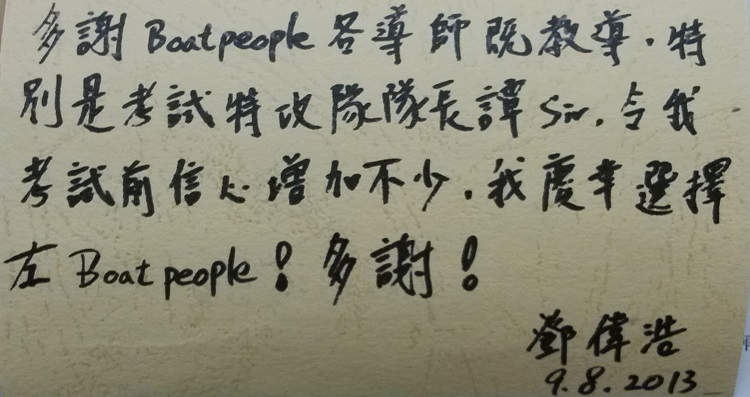 多謝 Boatpeople 各導師既教導，特
別是考試特攻隊隊長譚 Sir，令我
考試前信心增加不少，我慶幸選擇
左 Boatpeople！多謝！
鄧偉浩
9.8.2013